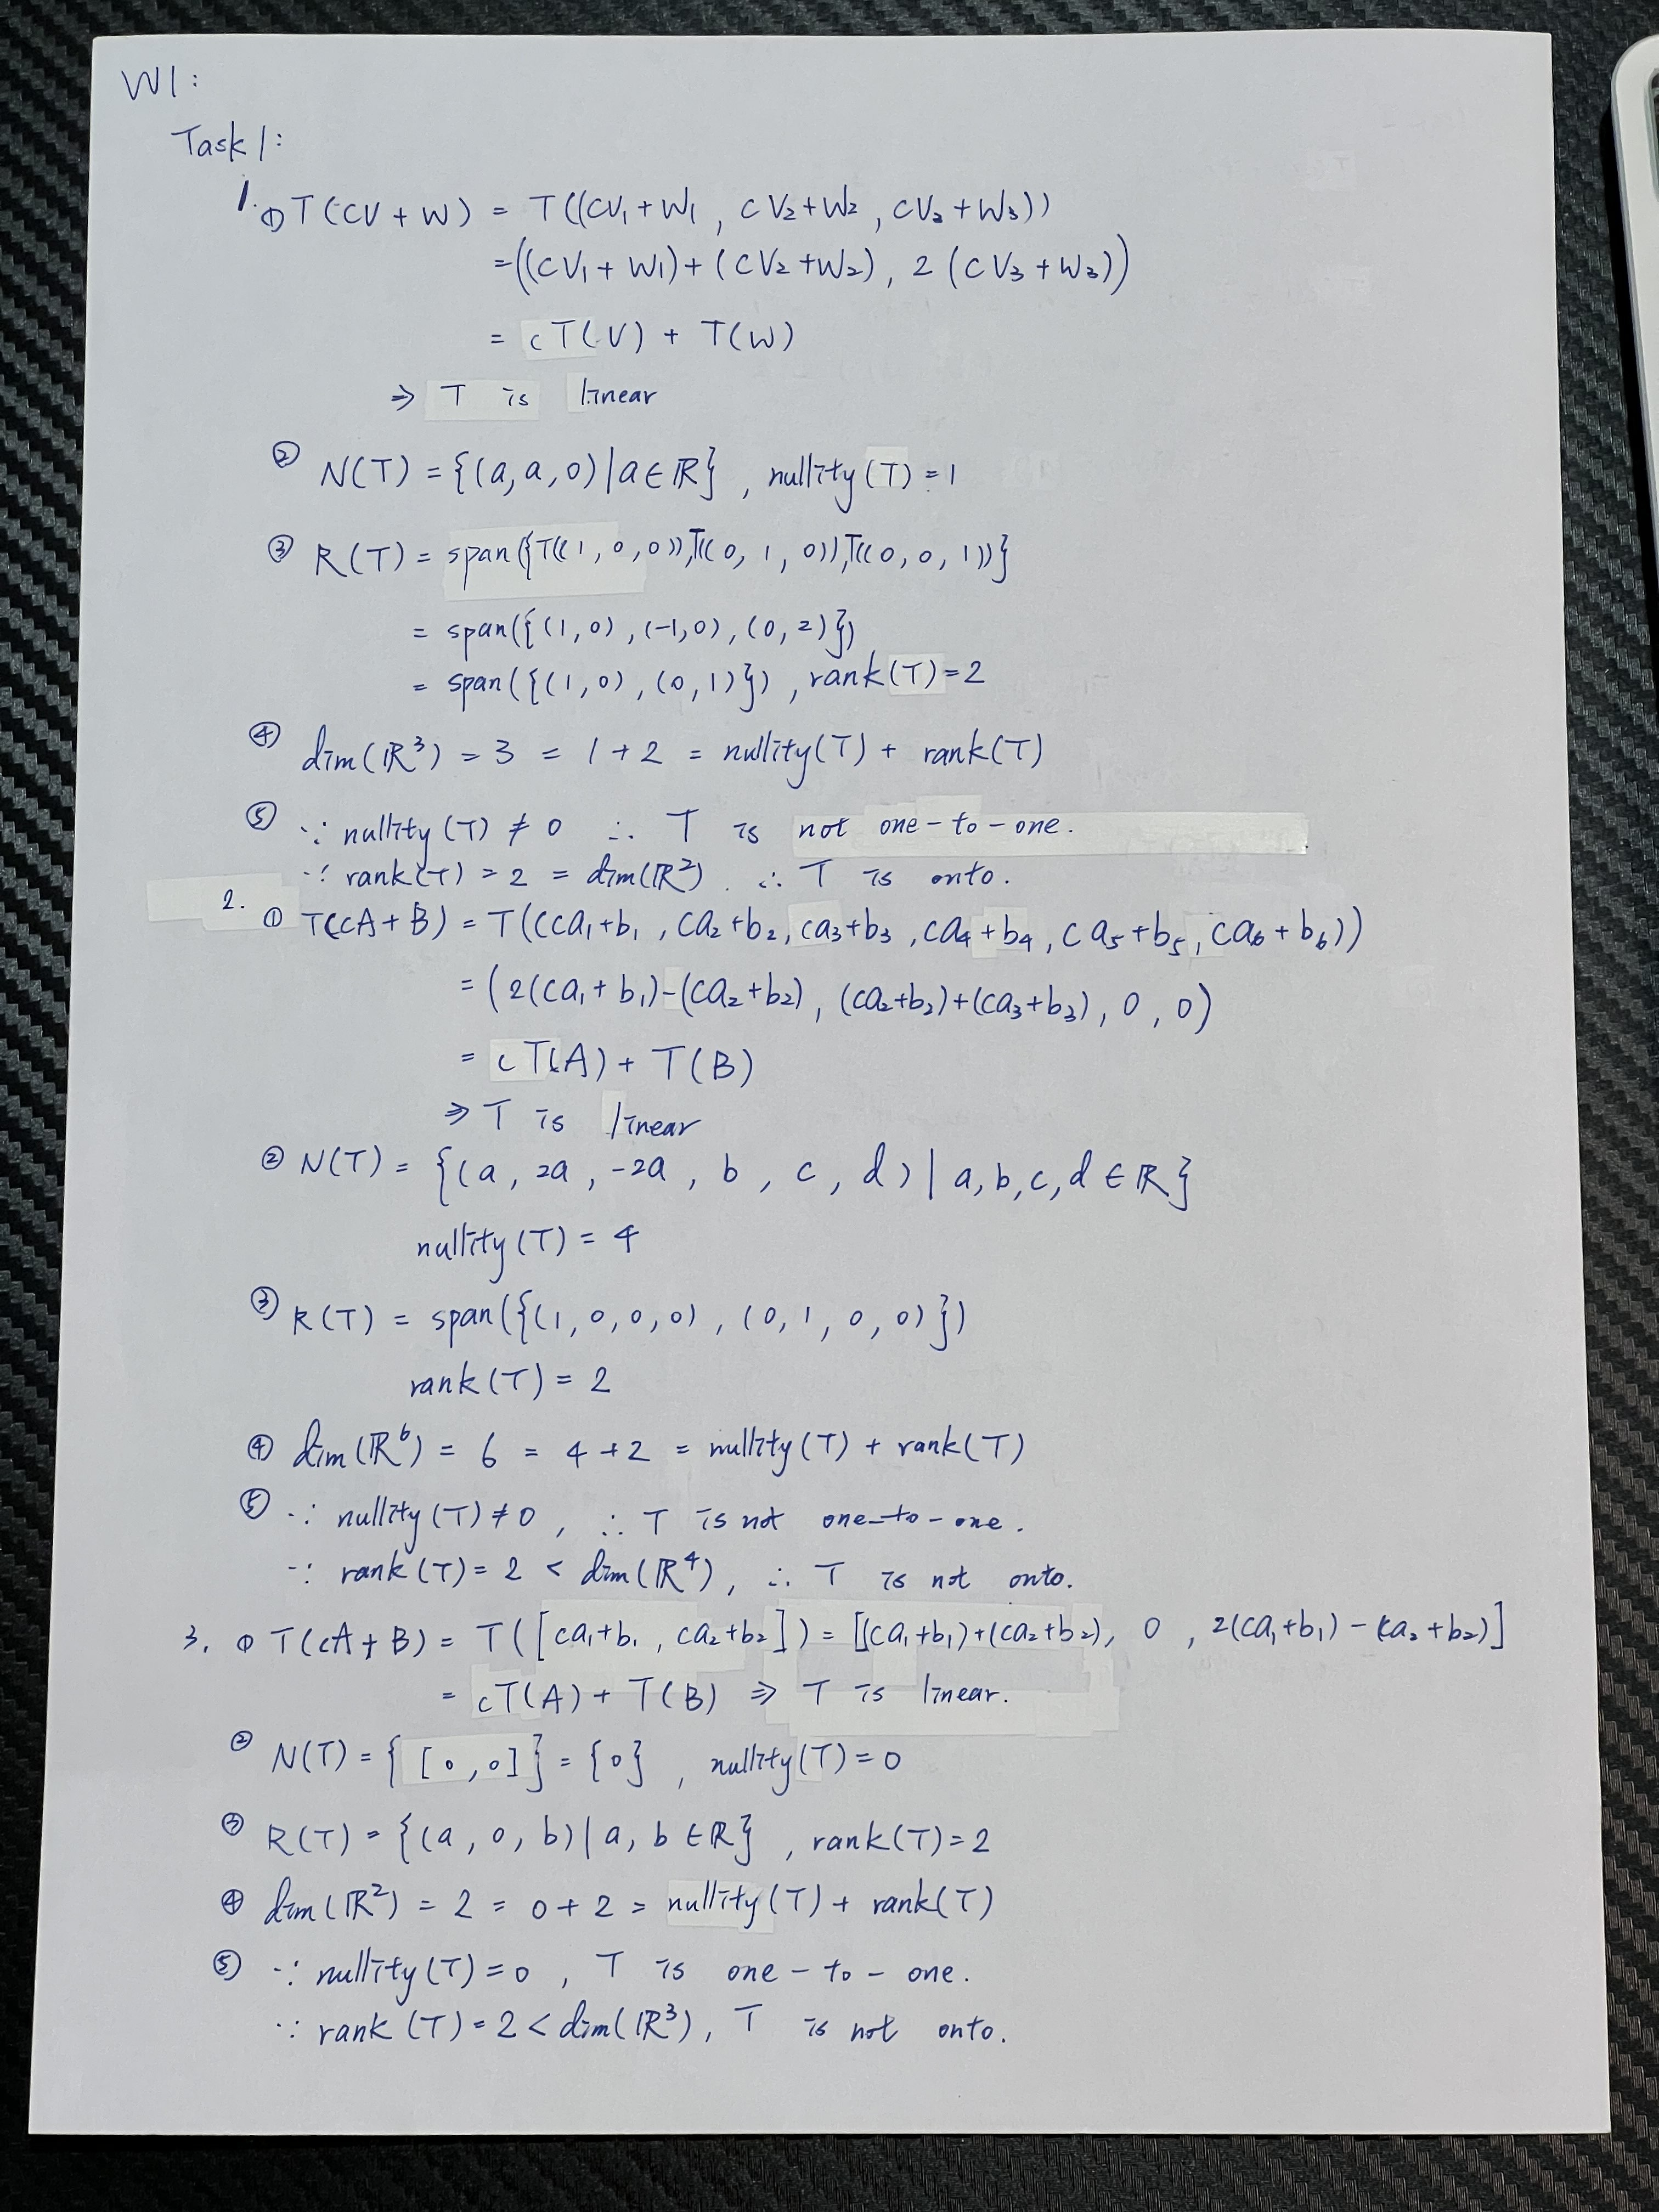 W1:
Task 1:
1. ① T(cV + W) = T((cV₁+W₁, cV₂+W₂, cV₃+W₃))
= ((cV₁+W₁)+(cV₂+W₂), 2(cV₃+W₃))
= cT(V) + T(W)
⇒ T is linear
② N(T) = {(a,a,0)|a∈ℝ}, nullity(T)=1
③ R(T) = span({T((1,0,0)),T((0,1,0)),T((0,0,1))}
= span({(1,0),(-1,0),(0,2)})
= span({(1,0),(0,1)}), rank(T)=2
④ dim(ℝ³) = 3 = 1+2 = nullity(T) + rank(T)
⑤ ∵ nullity(T) ≠ 0 ∴ T is not one-to-one.
∵ rank(T) = 2 = dim(ℝ²). ∴ T is onto.
2. ① T(cA+B) = T((ca₁+b₁, ca₂+b₂, ca₃+b₃, ca₄+b₄, ca₅+b₅, ca₆+b₆))
= (2(ca₁+b₁)-(ca₂+b₂), (ca₂+b₂)+(ca₃+b₃), 0, 0)
= cT(A) + T(B)
⇒ T is linear
② N(T) = {(a, 2a, -2a, b, c, d)|a,b,c,d∈ℝ}
nullity(T) = 4
③ R(T) = span({(1,0,0,0),(0,1,0,0)})
rank(T) = 2
④ dim(ℝ⁶) = 6 = 4+2 = nullity(T) + rank(T)
⑤ ∵ nullity(T)≠0, ∴ T is not one-to-one.
∵ rank(T) = 2 < dim(ℝ⁴), ∴ T is not onto.
3. ① T(cA+B) = T([ca₁+b₁, ca₂+b₂]) = [(ca₁+b₁)+(ca₂+b₂), 0, 2(ca₁+b₁)-(ca₂+b₂)]
= cT(A) + T(B) ⇒ T is linear.
② N(T) = {[0,0]} = {0}, nullity(T)=0
③ R(T) = {(a,0,b)|a,b∈ℝ}, rank(T)=2
④ dim(ℝ²) = 2 = 0+2 = nullity(T) + rank(T)
⑤ ∵ nullity(T)=0, T is one-to-one.
∵ rank(T)=2<dim(ℝ³), T is not onto.